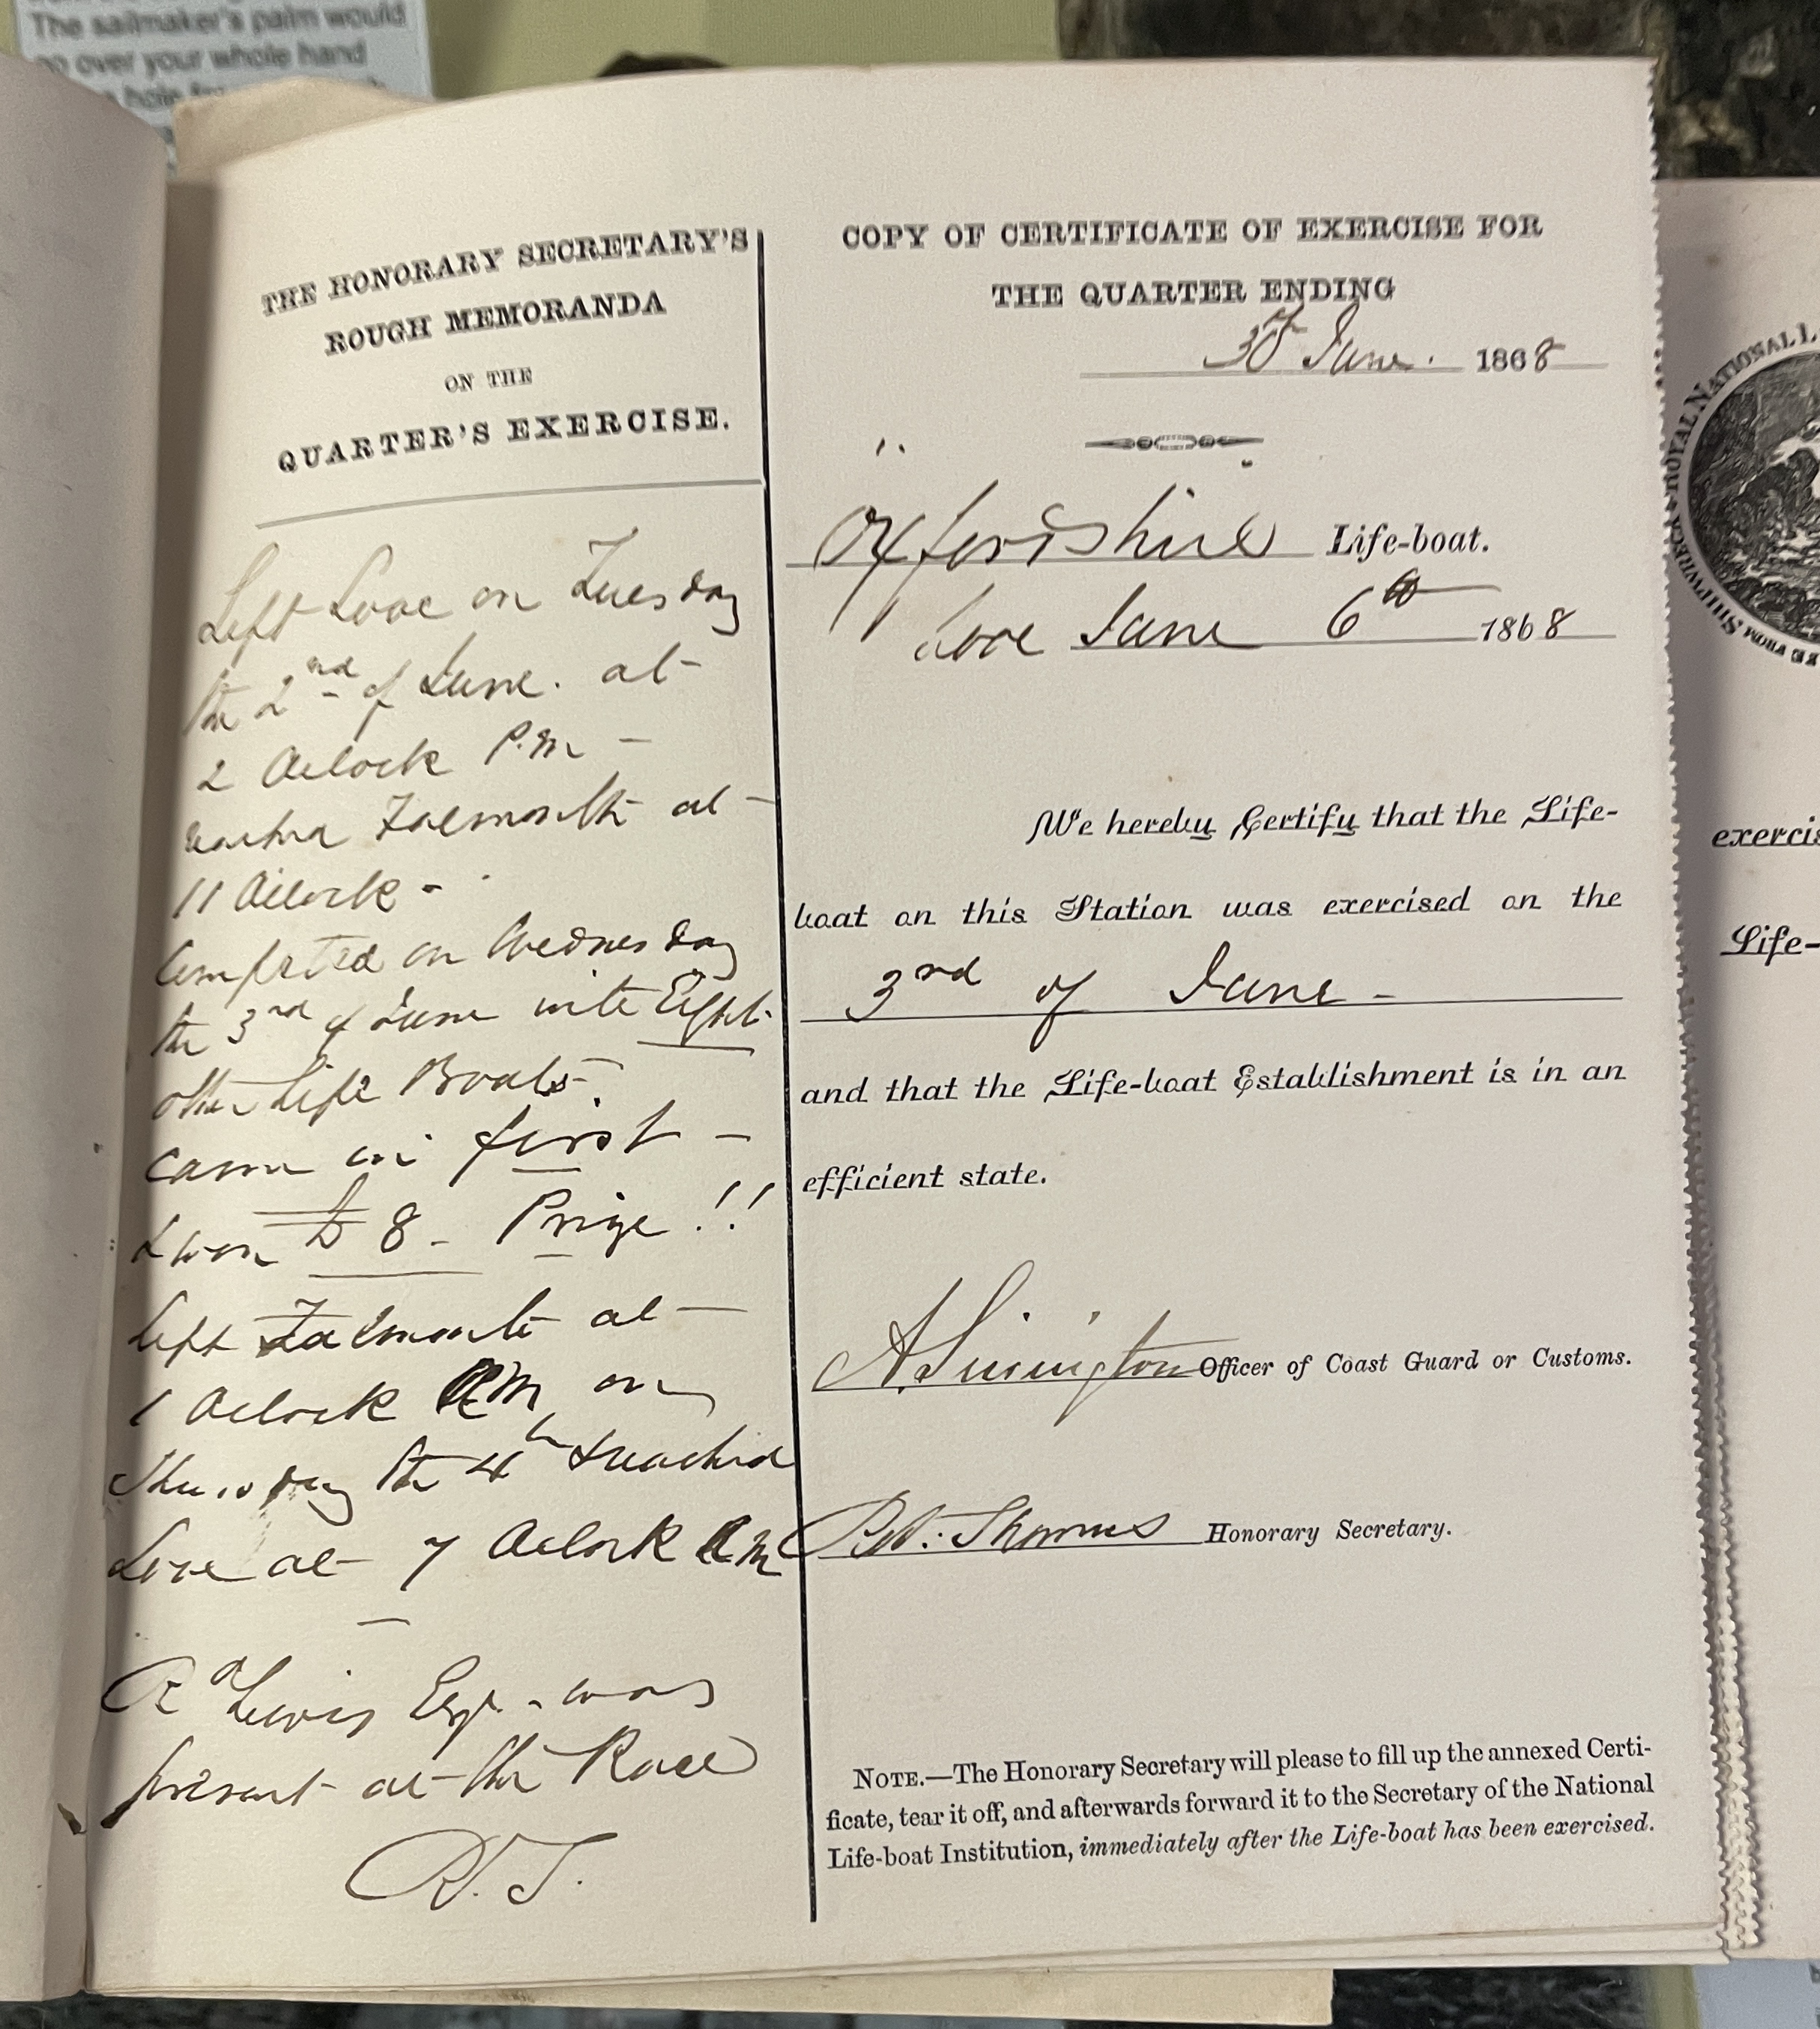 The sailmaker's palm would
go over your whole hand
THE HONORARY SECRETARY'S
ROUGH MEMORANDA
ON THE
QUARTER'S EXERCISE.
Left Looe on Tuesday
the 2nd of June. at
2 Oclock P.M –
reached Falmouth at –
11 Oclock –
Competed on Wednesday
the 3rd of June with Eight
other Life Boats.
came in first –
& won £8 – Prize !!
left Falmouth at –
1 Oclock AM on
Thursday the 4th & reached
Looe at 7 Oclock AM
—
Rd Lewis Esqr. was
present at the Race
R.T.
COPY OF CERTIFICATE OF EXERCISE FOR
THE QUARTER ENDING
30th June. 1868
Oxfordshire Life-boat.
Looe June 6th 1868
We hereby Certify that the Life-
boat on this Station was exercised on the
3rd of June –
and that the Life-boat Establishment is in an
efficient state.
Officer of Coast Guard or Customs.
Rd. Thomas Honorary Secretary.
NOTE.—The Honorary Secretary will please to fill up the annexed Certi-
ficate, tear it off, and afterwards forward it to the Secretary of the National
Life-boat Institution, immediately after the Life-boat has been exercised.
ROYAL NATIONAL L
FROM SHIPWRECK
exercis
Life-